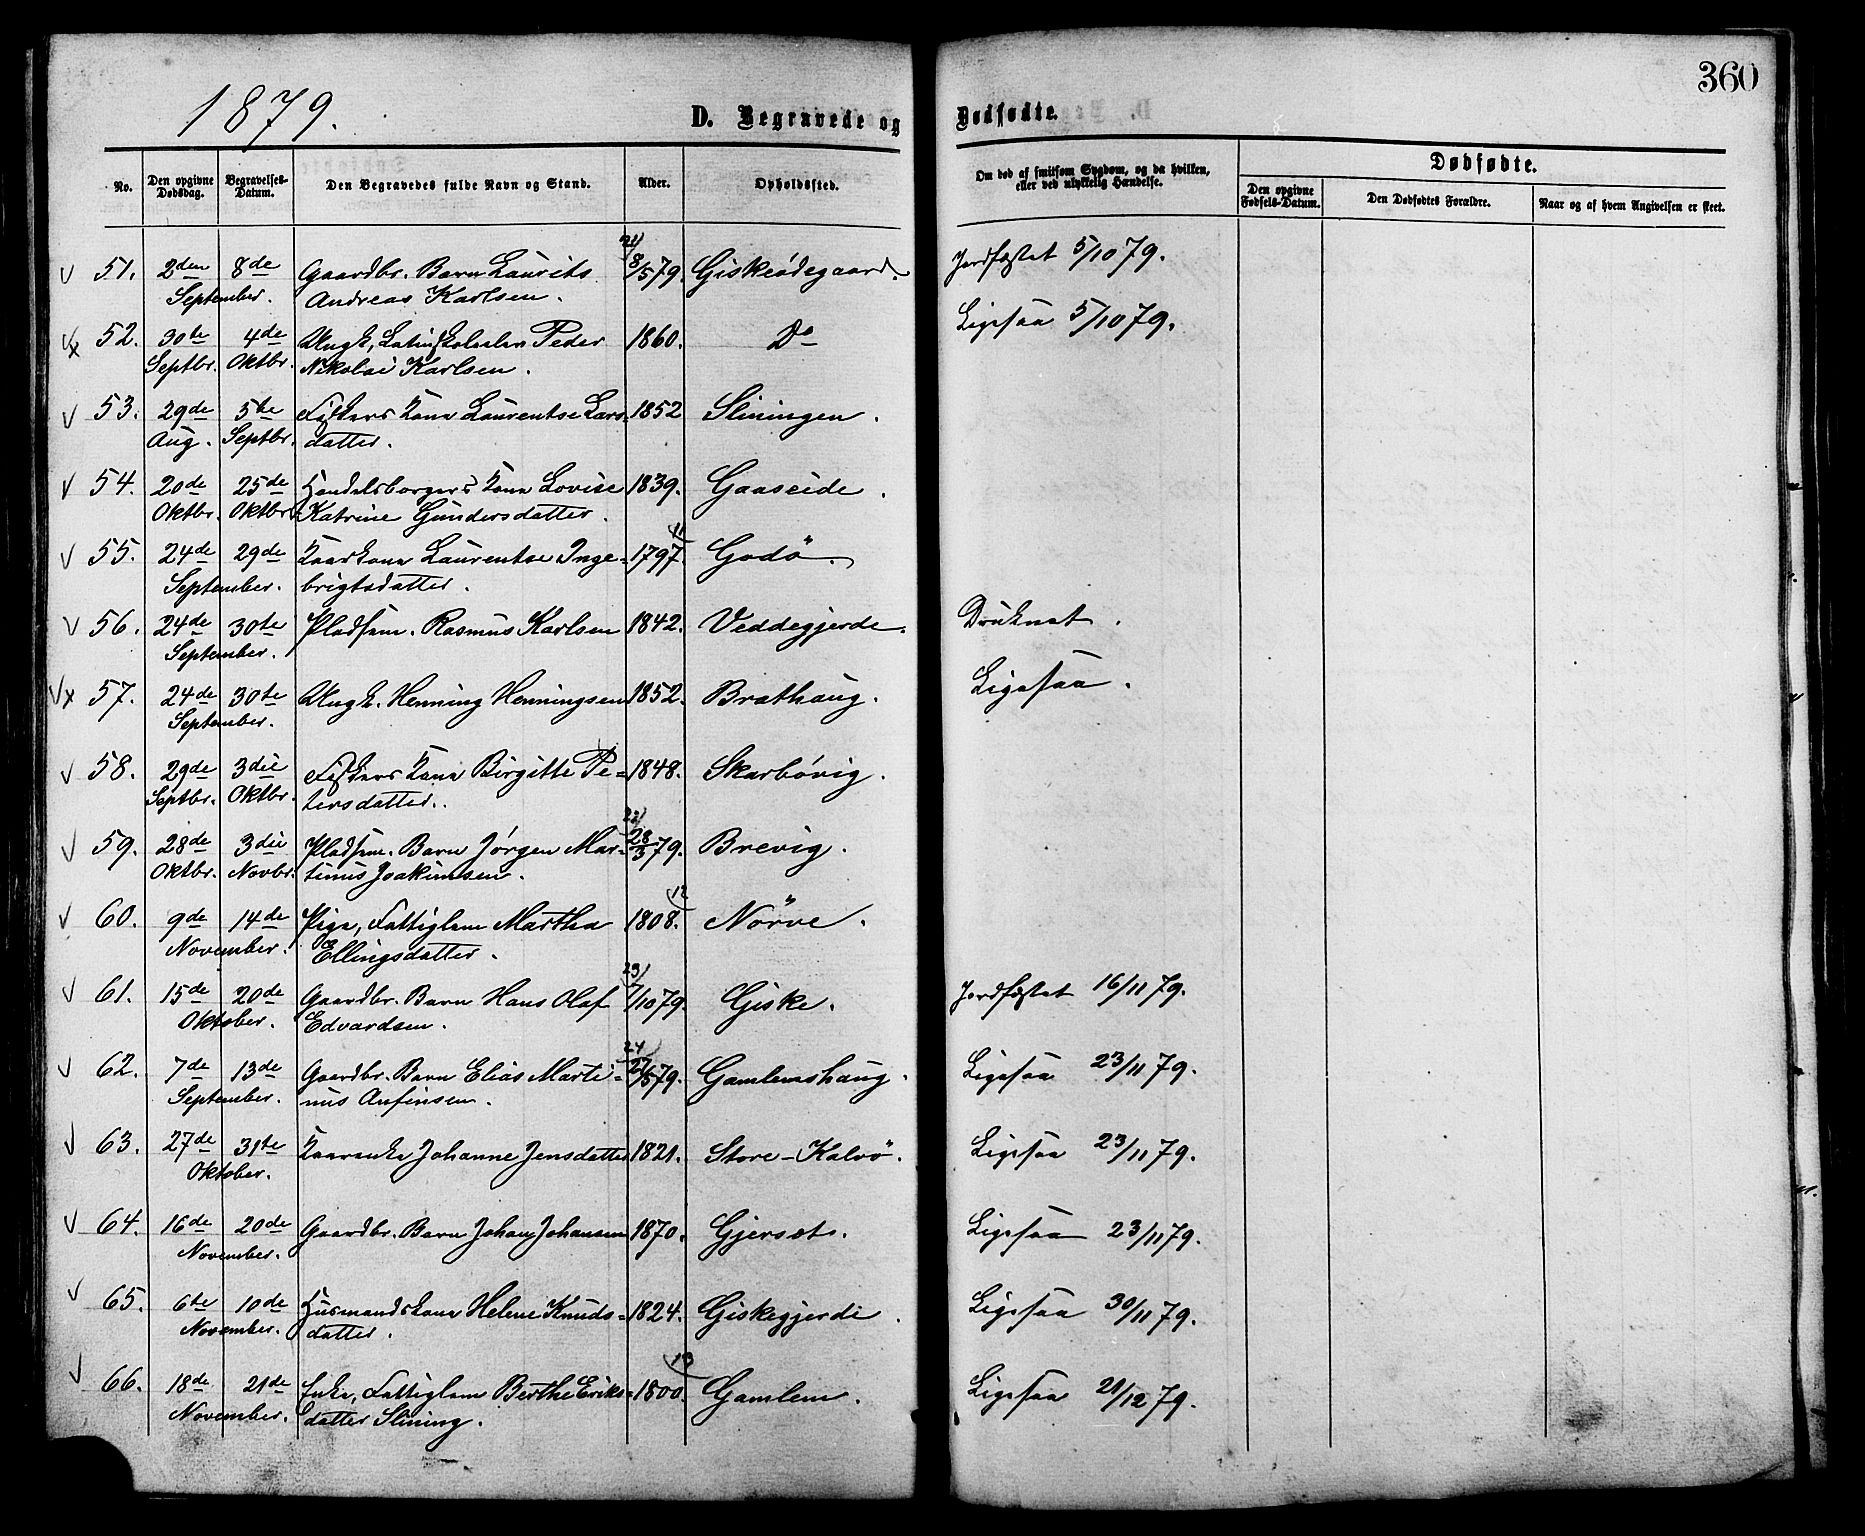 360
1879.
D. Begravede og Dødfødte.
No. Den opgivne Dødsdag. Begravelses-Datum. Den Begravedes fulde Navn og Stand. Alder. Opholdssted. Om død af smitsom Sygdom, og da hvilken, eller ved ulykkelig Hændelse. Dødfødte.
Den opgivne Fødsels-Datum. Den Dødfødtes Forældre. Naar og af hvem Angivelsen er skeet.
51. 2den 8de Gaardbr. Barn Laurits 21) 8/5 79. Giskeødegaard. Jordfæstet 5/10 79.
September. Andreas Karlsen.
52. 30te 4de Ungk, Latinskoleelev Peder 1860. Do Ligesaa 5/10 79.
Septbr. Oktbr. Nikolai Karlsen.
53. 29de 5te Fiskers Kone Laurentse Lars- 1852 Sliningen.
Aug. Septbr. datter.
54. 20de 25de Handelsborgers Kone Lovise 1839. Gaaseide.
Oktbr. Oktbr. Katrine Gundersdatter.
55. 24de 29de Kaarkone Laurentse Inge- 1797. (11 Godö.
September. brigtsdatter.
56. 24de 30te Pladsm. Rasmus Karlsen 1842. Veddegjerde. Druknet.
September.
57. 24de 30te Ungk. Henning Henningsen 1852. Brathaug. Ligesaa.
September.
58. 29de 3die Fiskers Kone Birgitte Pe- 1848. Skarbövig.
Septbr. Oktbr. tersdatter.
59. 28de 3die Pladsm. Barn Jörgen Mar- 22) 28/3 79. Brevig.
Oktbr. Novbr. tinus Joakimsen.
60. 9de 14de Pige, Fattiglem Martha 1808. (12 Nörve.
November. Ellingsdatter.
61. 15de 20de Gaardbr. Barn Hans Olaf 23) 7/10 79. Giske. Jordfæstet 16/11 79.
Oktober. Edvardsen.
62. 7de 13de Gaardbr. Barn Elias Marti- 24) 79. Gamlemshaug. Ligesaa 23/11 79.
September. nus Anfensen.
63. 27de 31te Kaarenke Johanne Jensdatter 1821. Store-Kalvö. Ligesaa 23/11 79.
Oktober.
64. 16de 20de Gaardbr. Barn Johan Johansen 1870. Gjersæt. Ligesaa 23/11 79.
November.
65. 6te 10de Husmandskone Helene Knuds- 1824. Giskegjerde. Ligesaa 30/11 79.
November. datter.
66. 18de 21de Enke, Fattiglem Berthe Eriks- 1800. (13 Gamlem. Ligesaa 21/12 79.
November. datter Slining.